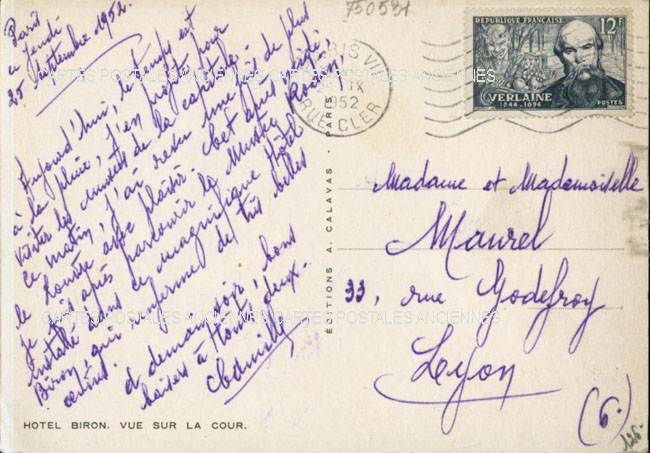 750531
Paris
ce jeudi
25 septembre 1952
Aujourd'hui, le temps est
à la pluie, j'en profite pour
visiter les musées de la capitale.
ce matin, j'ai revu une fois de plus
le Louvre avec plaisir. C'est après midi,
je vais après parcourir le Musée Rodin,
installé dans ce magnifique Hôtel
Biron, qui renferme de très belles
œuvres.
à demain soir, bons
baisers à toutes deux.
HOTEL BIRON. VUE SUR LA COUR.
ÉDITIONS A. CALAVAS - PARIS
PARIS VII
IX
1952
RUE CLER
REPUBLIQUE FRANÇAISE
12F
VERLAINE
1844-1896
POSTES
Madame et Mademoiselle
Maurel
33, rue Godefroy
Lyon
(6.)
126.
CARTES POSTALES ANCIENNES